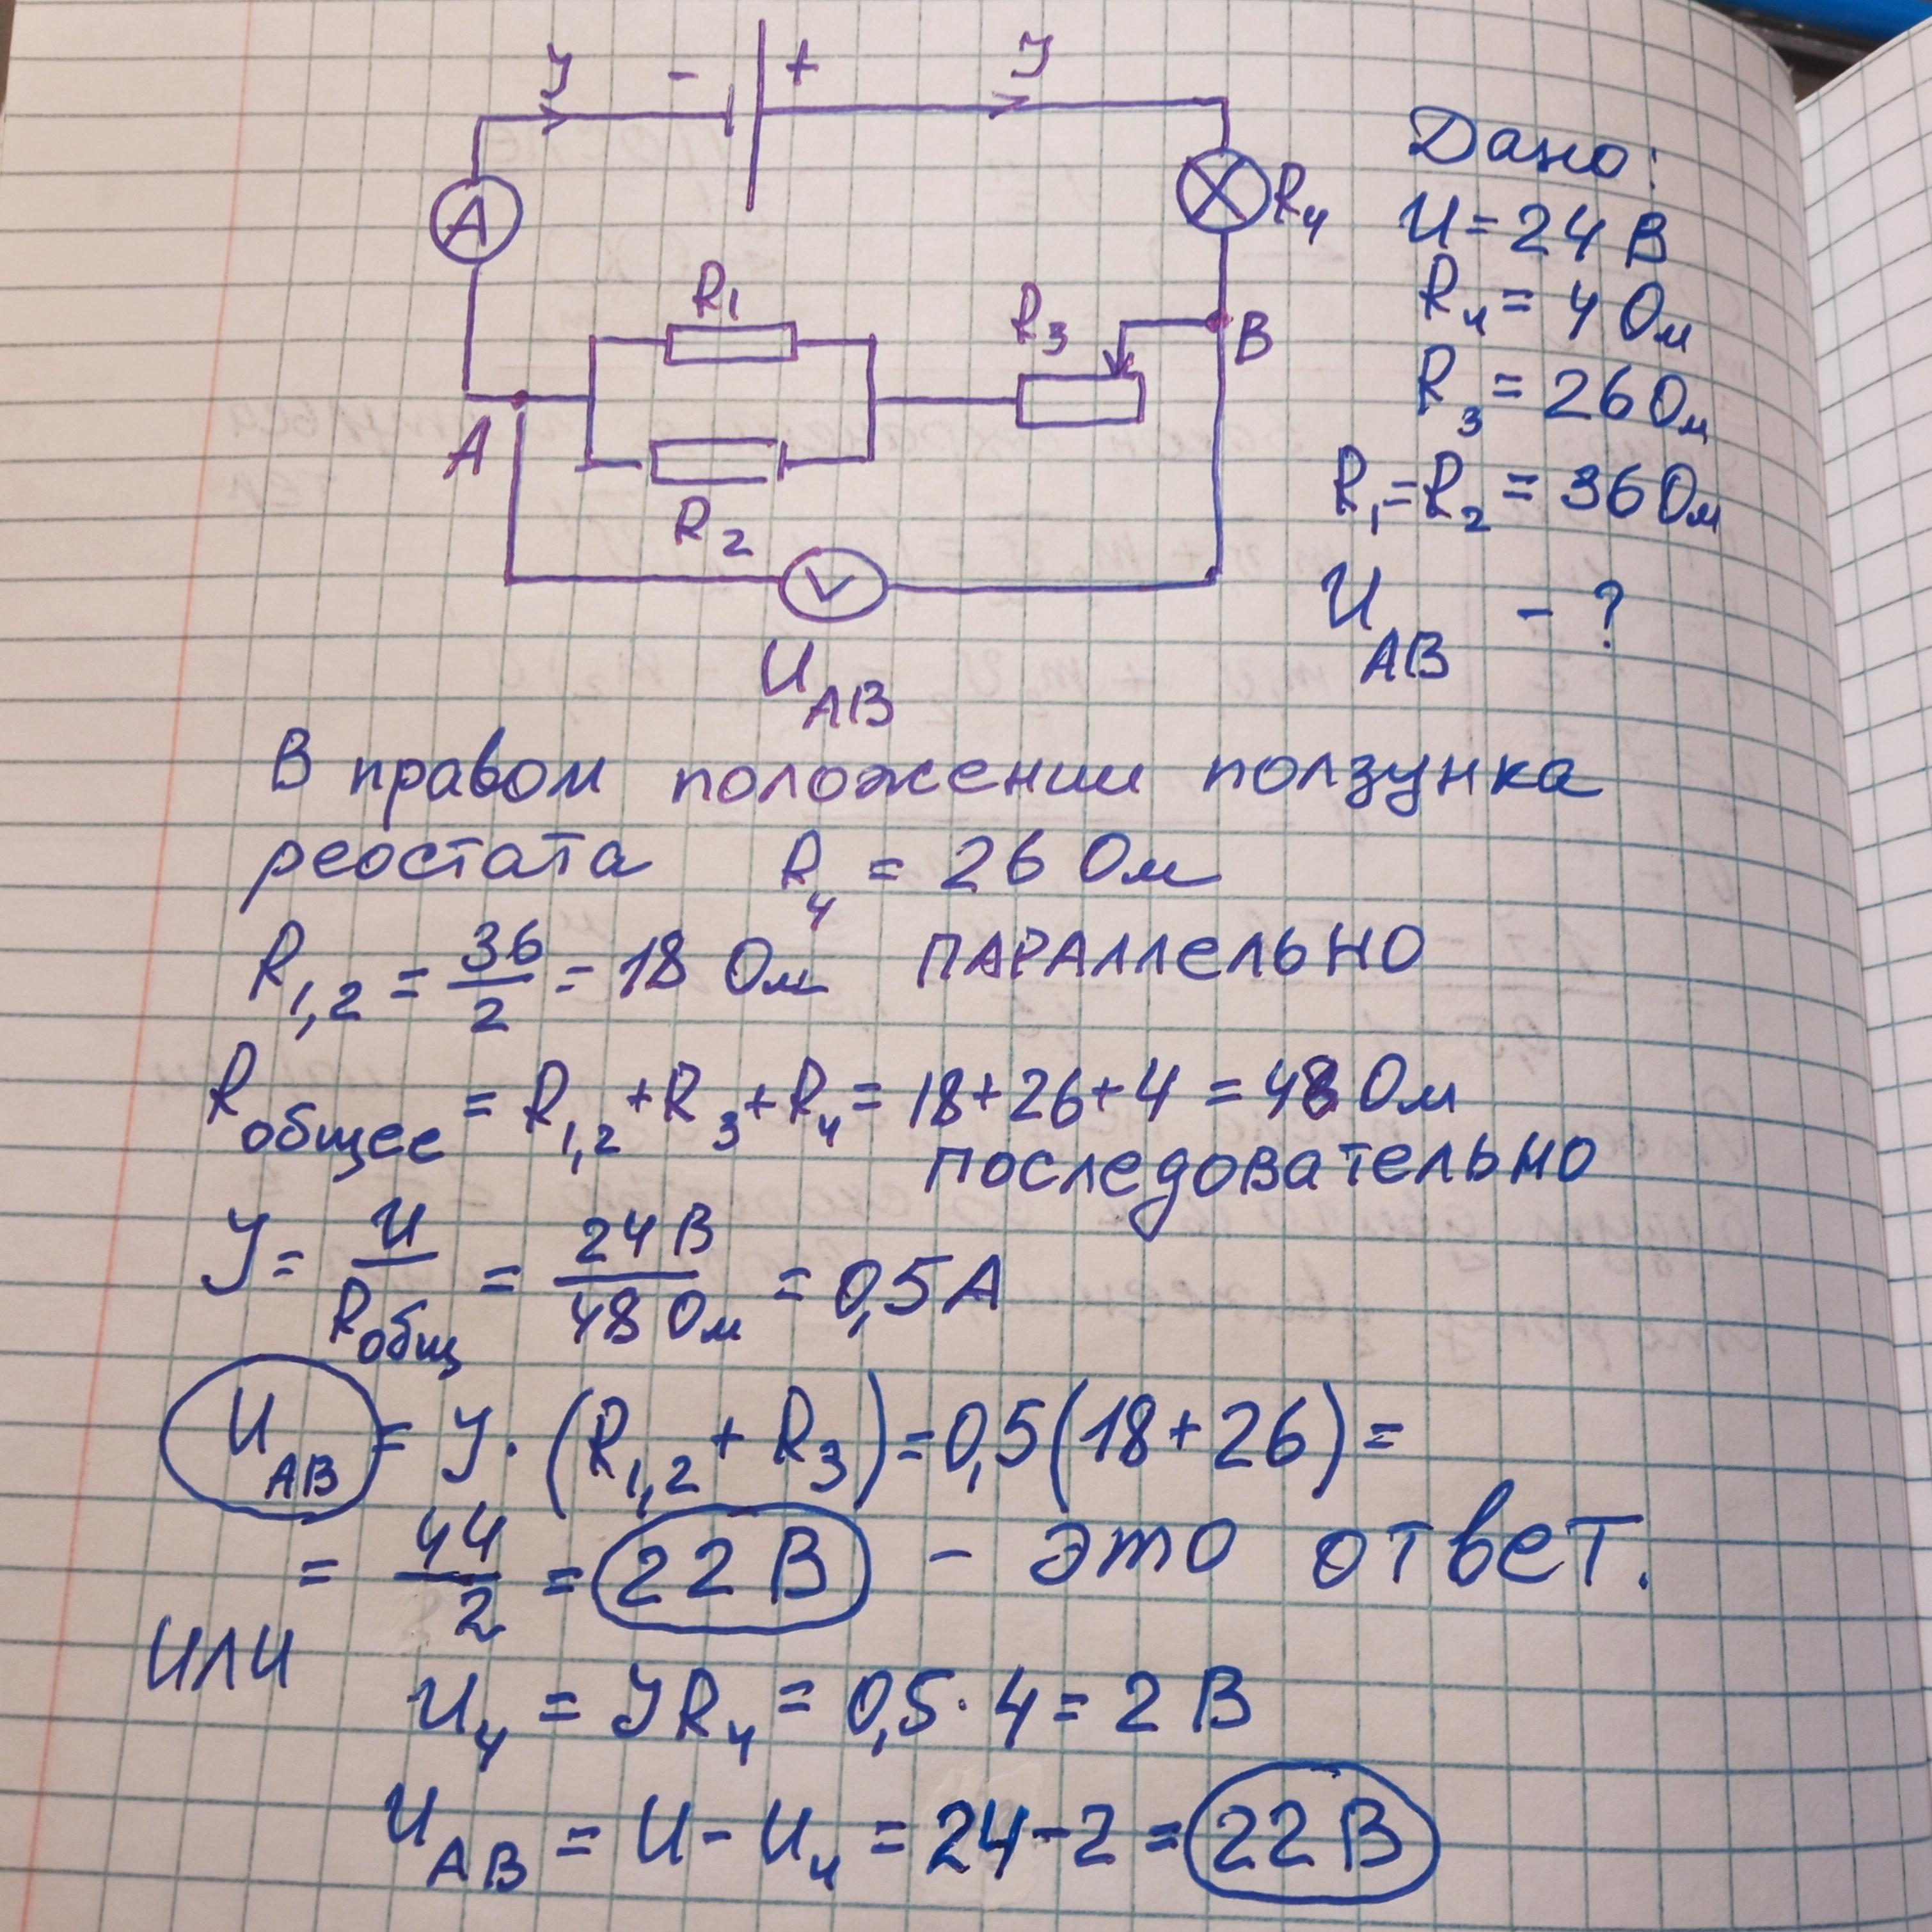 У - + У
A
R4
R1
R3
B
A
R2
V
UAB
Дано:
U = 24 В
R4 = 4 Ом
R3 = 26 Ом
R1 = R2 = 36 Ом
UAB - ?
В правом положении ползунка
реостата R4 = 26 Ом
R1,2 = 36/2 = 18 Ом ПАРАЛЛЕЛЬНО
Rобщее = R1,2 + R3 + R4 = 18 + 26 + 4 = 48 Ом
ПОСЛЕДОВАТЕЛЬНО
У = U/Rобщ = 24 В/48 Ом = 0,5 А
UAB = У · (R1,2 + R3) = 0,5 (18 + 26) =
= 44/2 = 22 В - это ответ.
ИЛИ
U4 = УR4 = 0,5 · 4 = 2 В
UAB = U - U4 = 24 - 2 = 22 В